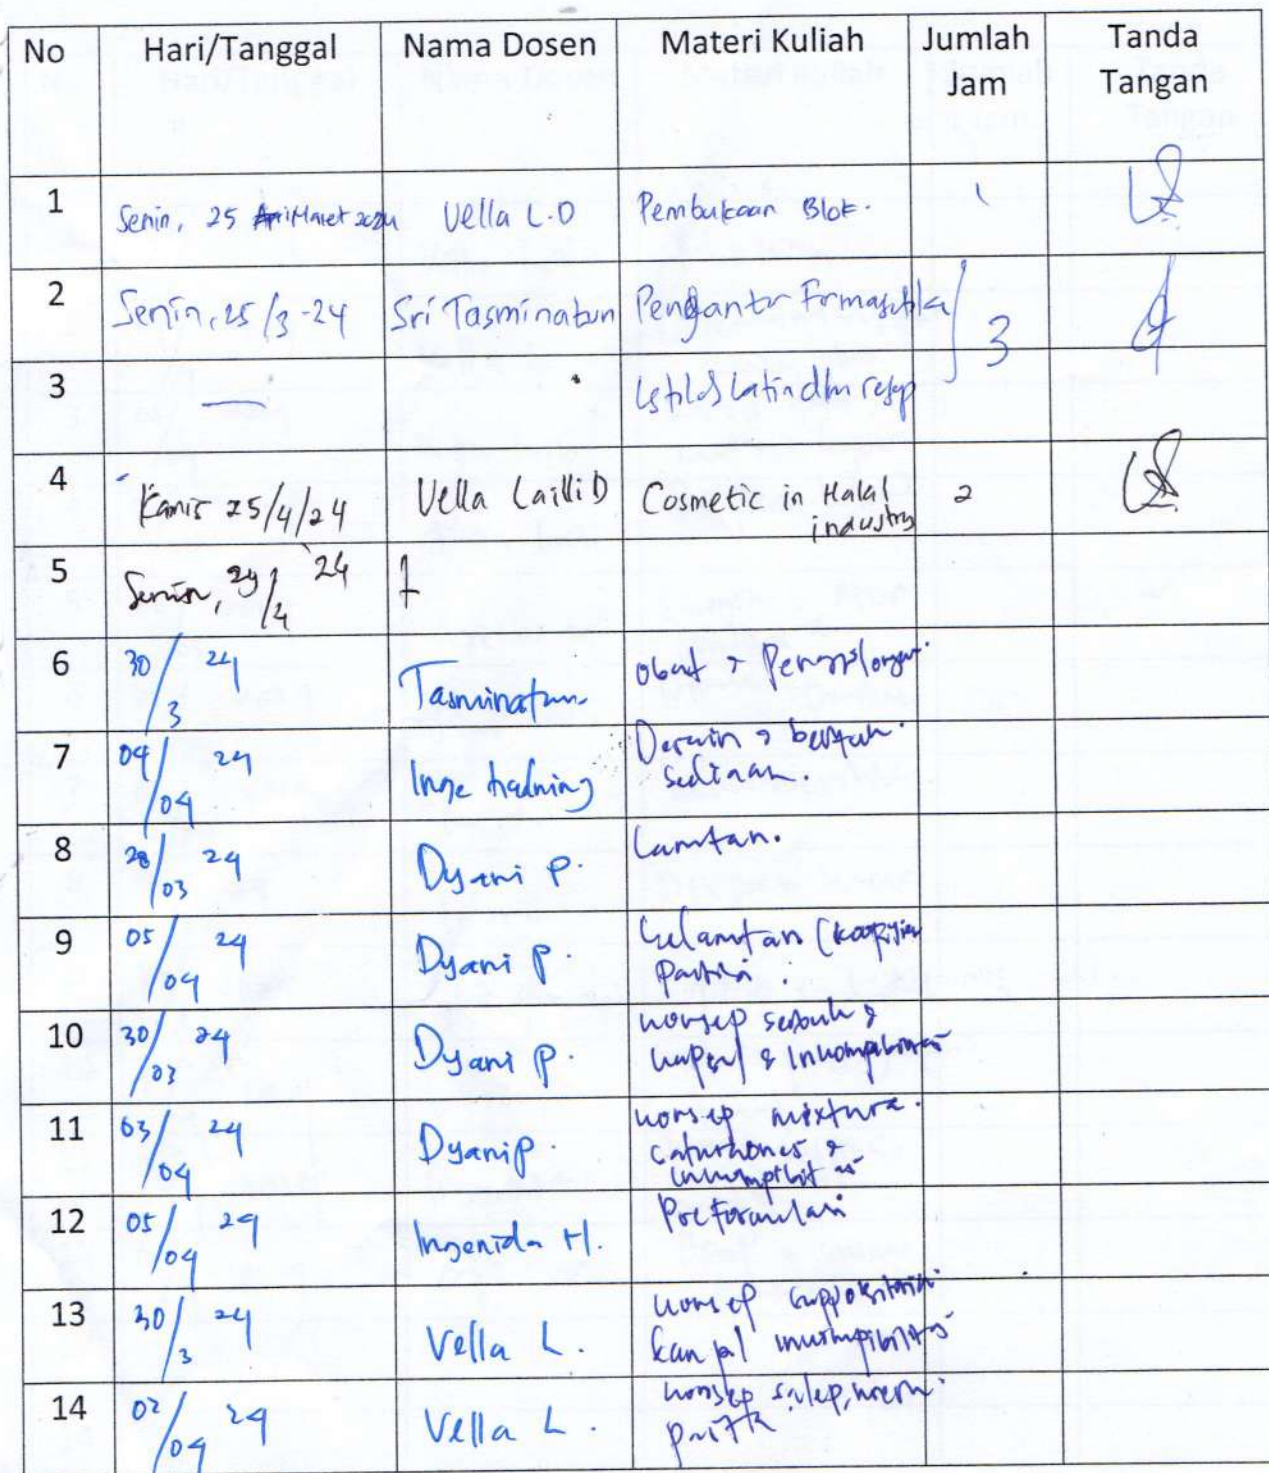 No Hari/Tanggal Nama Dosen Materi Kuliah Jumlah Jam Tanda Tangan
1 Senin, 25 Maret 2024 Vella L.D Pembukaan Blok. 1
2 Senin, 25/3-24 Sri Tasminatun Pengantar Farmasetika 3
3 — latin dlm resep
4 Kamis 25/4/24 Vella Lailli D Cosmetic in Halal industry 2
5 Senin, 29/4 24
6 30/3 24 Tasminatun Obat &
7 04/04 24 Inge sediaan.
8 28/03 24 Dyani P. Larutan.
9 05/04 24 Dyani P. Kelarutan (koefisien partisi.
10 30/03 24 Dyani P. konsep serbuk & kapsul & Inkompabilitas
11 03/04 24 Dyani P. konsep mixtura.
12 05/04 24 Ingenida H. Preformulasi
13 30/3 24 Vella L. konsep suppositoria
14 02/04 24 Vella L. konsep salep, krem.